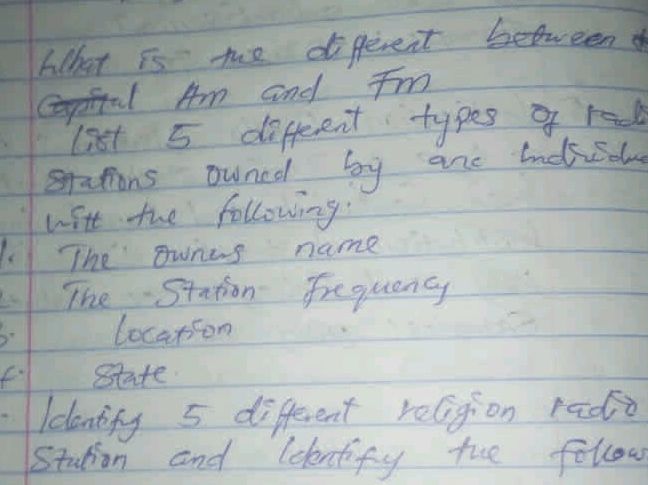 What is the different between
Am and Fm
list 5 different types of
Stations owned by are
with the following.
1. The owners name
The Station frequency
location
State
Identify 5 different religion radio
Station and Identify the